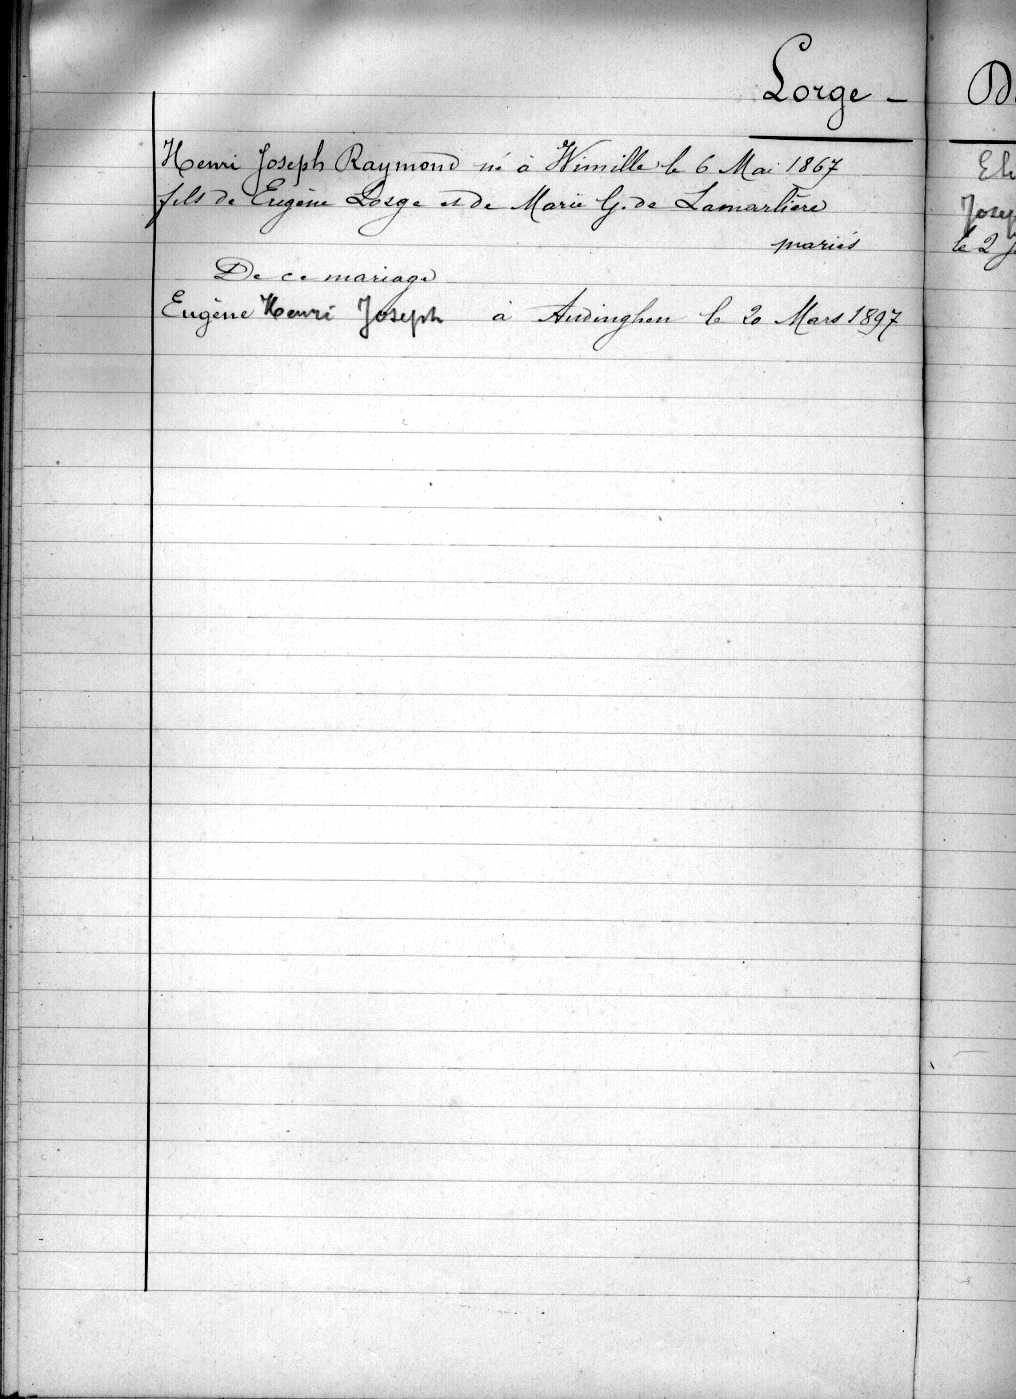 Lorge - D
Henri Joseph Raymond né à Wimille le 6 Mai 1867
fils de Eugène Lorge et de Marie G. de Lamarlière Josep
mariés le 2
De ce mariage
Eugène Henri Joseph à Audinghen le 20 Mars 1897